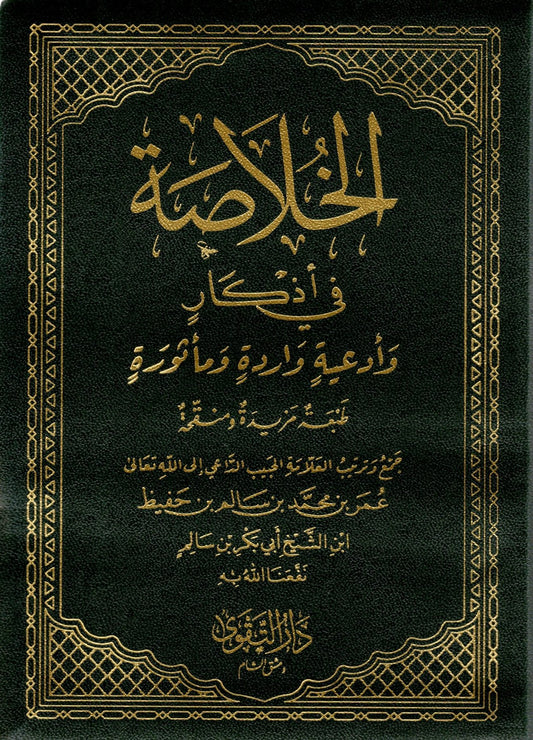 الخُلَاصَة
في أَذْكَارٍ
وَأَدعيةٍ وَاردةٍ وَمأثورَةٍ
طَبْعَةٌ مَزِيدَةٌ ومنقّحةٌ
جَمْعُ وَترتيبُ العَلَّامَةِ الحَبيبِ الدَّاعي إلى اللهِ تعَالىٰ
عُمَر بن محمَّد بن سَالم بن حَفيظ
ابنِ الشَّيْخِ أَبي بَكْر بْنِ سَالِمٍ
نَفَعَنَا اللهُ بِهِ
دَارُ التَّقْوَى
دمشق الشام